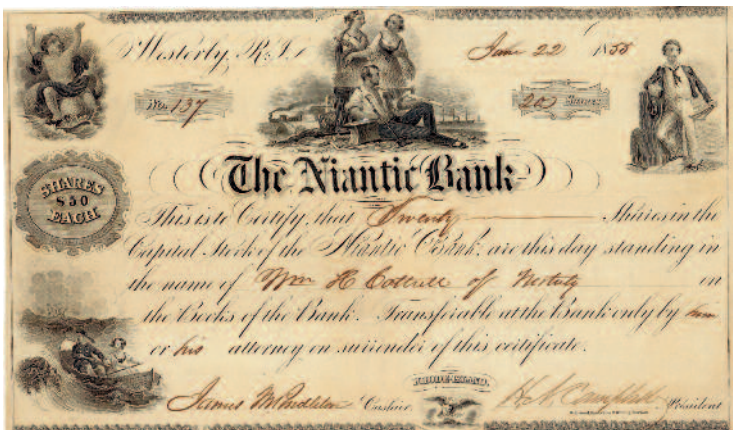 Westerly, R.I. June 22 1855
No. 137
20 Shares
SHARES
$50
EACH
The Niantic Bank
This is to Certify, that Twenty Shares in the
Capital Stock of the Niantic Bank, are this day standing in
the name of Wm H Cottrell of Westerly on
the Books of the Bank. Transferable at the Bank only by him
or his attorney on surrender of this certificate.
RHODE-ISLAND.
James M Pendleton Cashier.
H. N. Campbell President